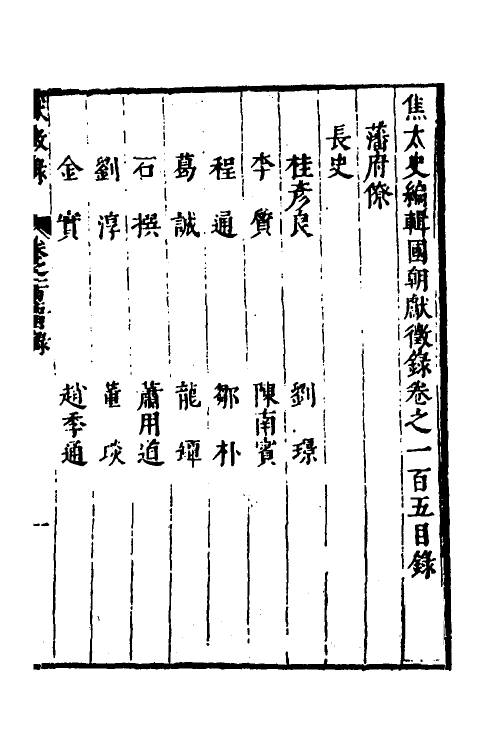 焦太史編輯國朝獻徵錄卷之一百五目錄
藩府僚
長史
桂彥良 劉璟
李質 陳南賓
程通 鄒朴
葛誠 龍鐔
石撰 蕭用道
劉淳 董琰
金實 趙季通
獻徵錄 卷之一百五目錄 一